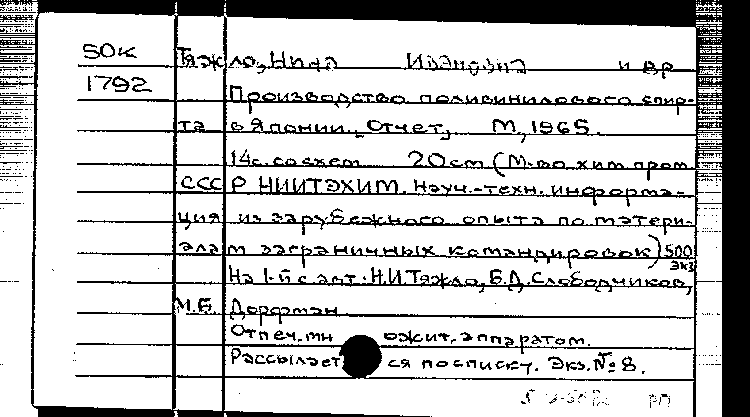 50К Тяжло, Нина Ивановна и др
1792 Производство поливинилового спир-
та в Японии. Отчет, М, 1965.
14с. со схем 20cm (М-во хим пром
СССР НИИТЭХИМ. Науч.-техн. информа-
ция из зарубежного опыта по матери-
алам заграничных командировок) 500
экз
На 1-й с авт: Н.И. Тяжло, Б.Д. Слободчиков,
М.Б. Дорфман
Отпеч. мн ожит. аппаратом.
Рассылает ся по списку. Экз. № 8.